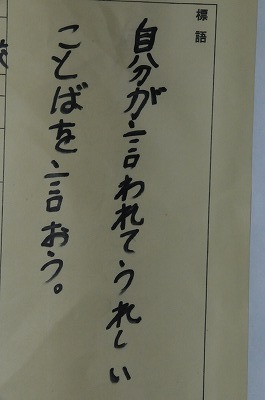 標語
自分が言われてうれしい
ことばを言おう。